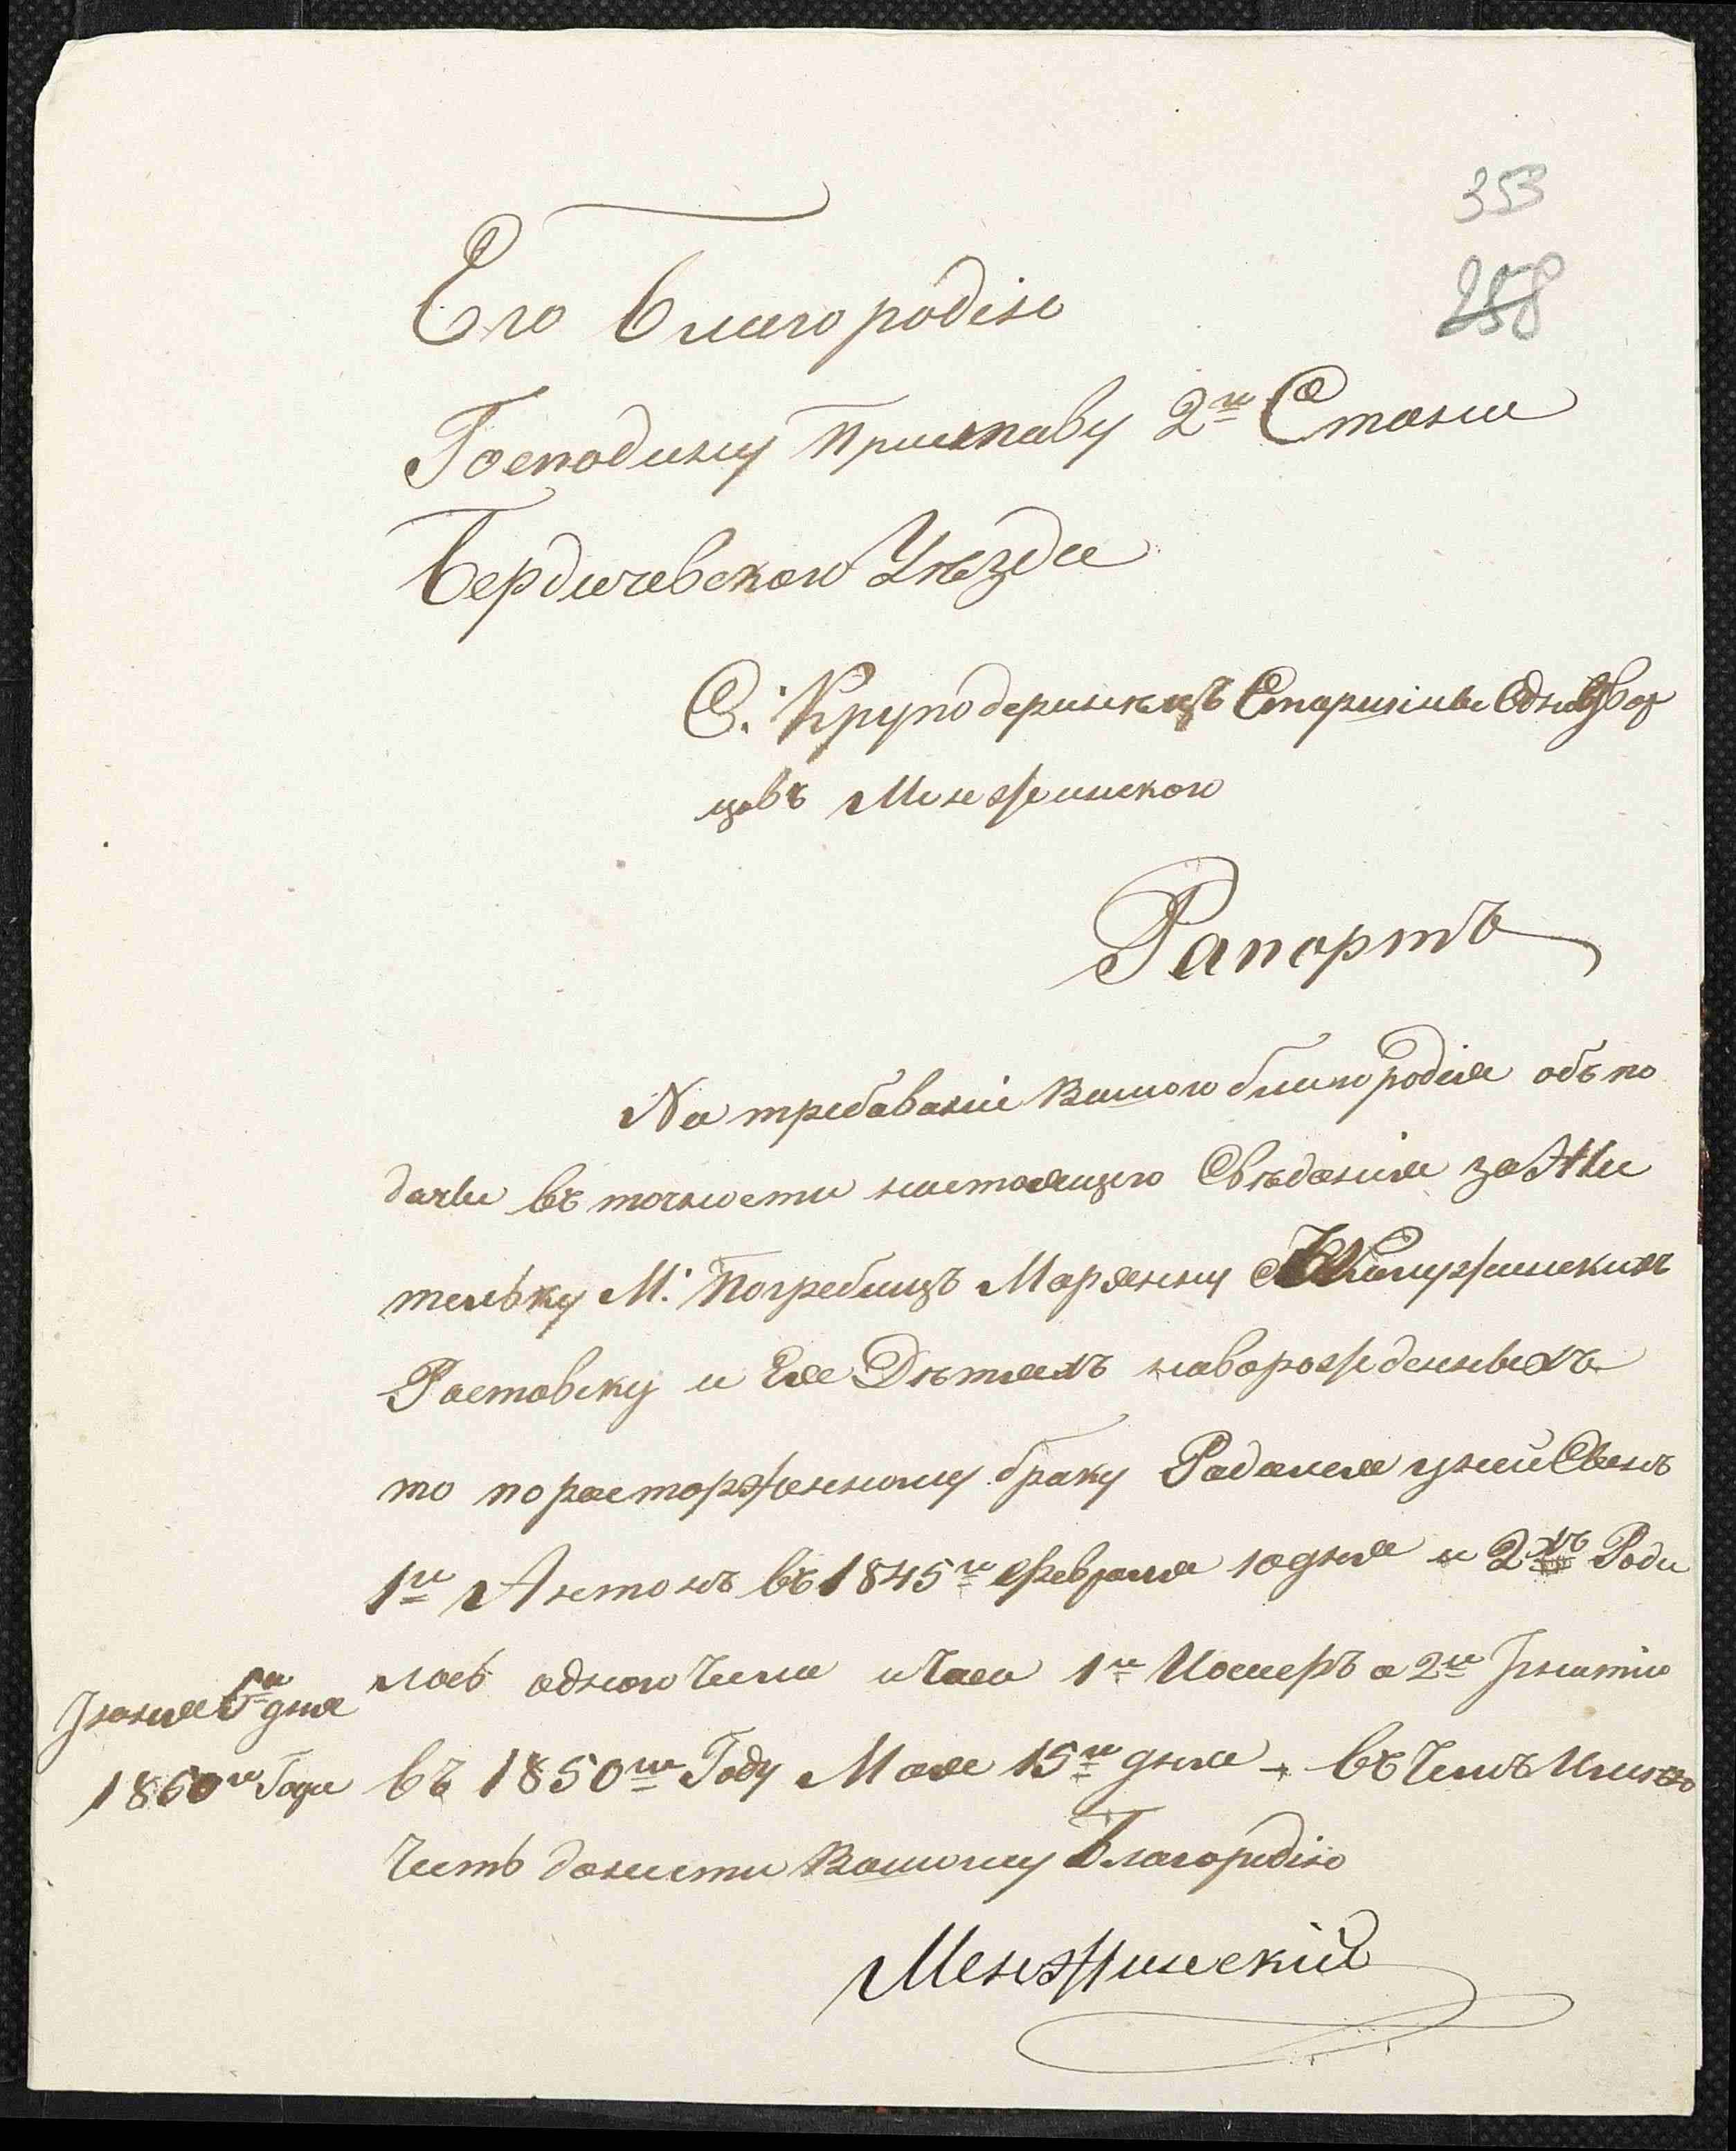 353
258
Его Благородію
Господину Приставу 2го Стана
Бердичевского Уѣзда
С. Круподеринецъ Старшины Однодвор
цовъ Менжинского
Рапортъ
На требованіи Вашого благородія объ по
дачи въ точности настоящего Свѣдѣнія за Жи
тельку М. Погребищъ Марянну
Ростовску и Ея Дѣтяхъ наворожденныхъ
то по расторженному браку Радился у ней Сынъ
1й Антонъ въ 1845го Февраля 10 дня и 2хъ Роди
лось одного Числа и Часа 1й а 2й Игнатій
въ 1850м Году Мая 15го дня - въ Чемъ Имѣю
Честь донести Вашому Благородію
Іюня 5го дня
1860го Года
Менжинскій